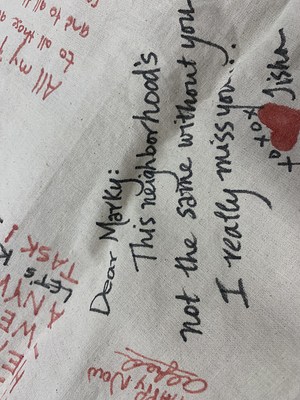 Dear Marky:
This neighborhood's
not the same without you
I really miss you...
All my
to all those
and to all
TASK!
LET'S
ANYW
WE
HAPPY NOW